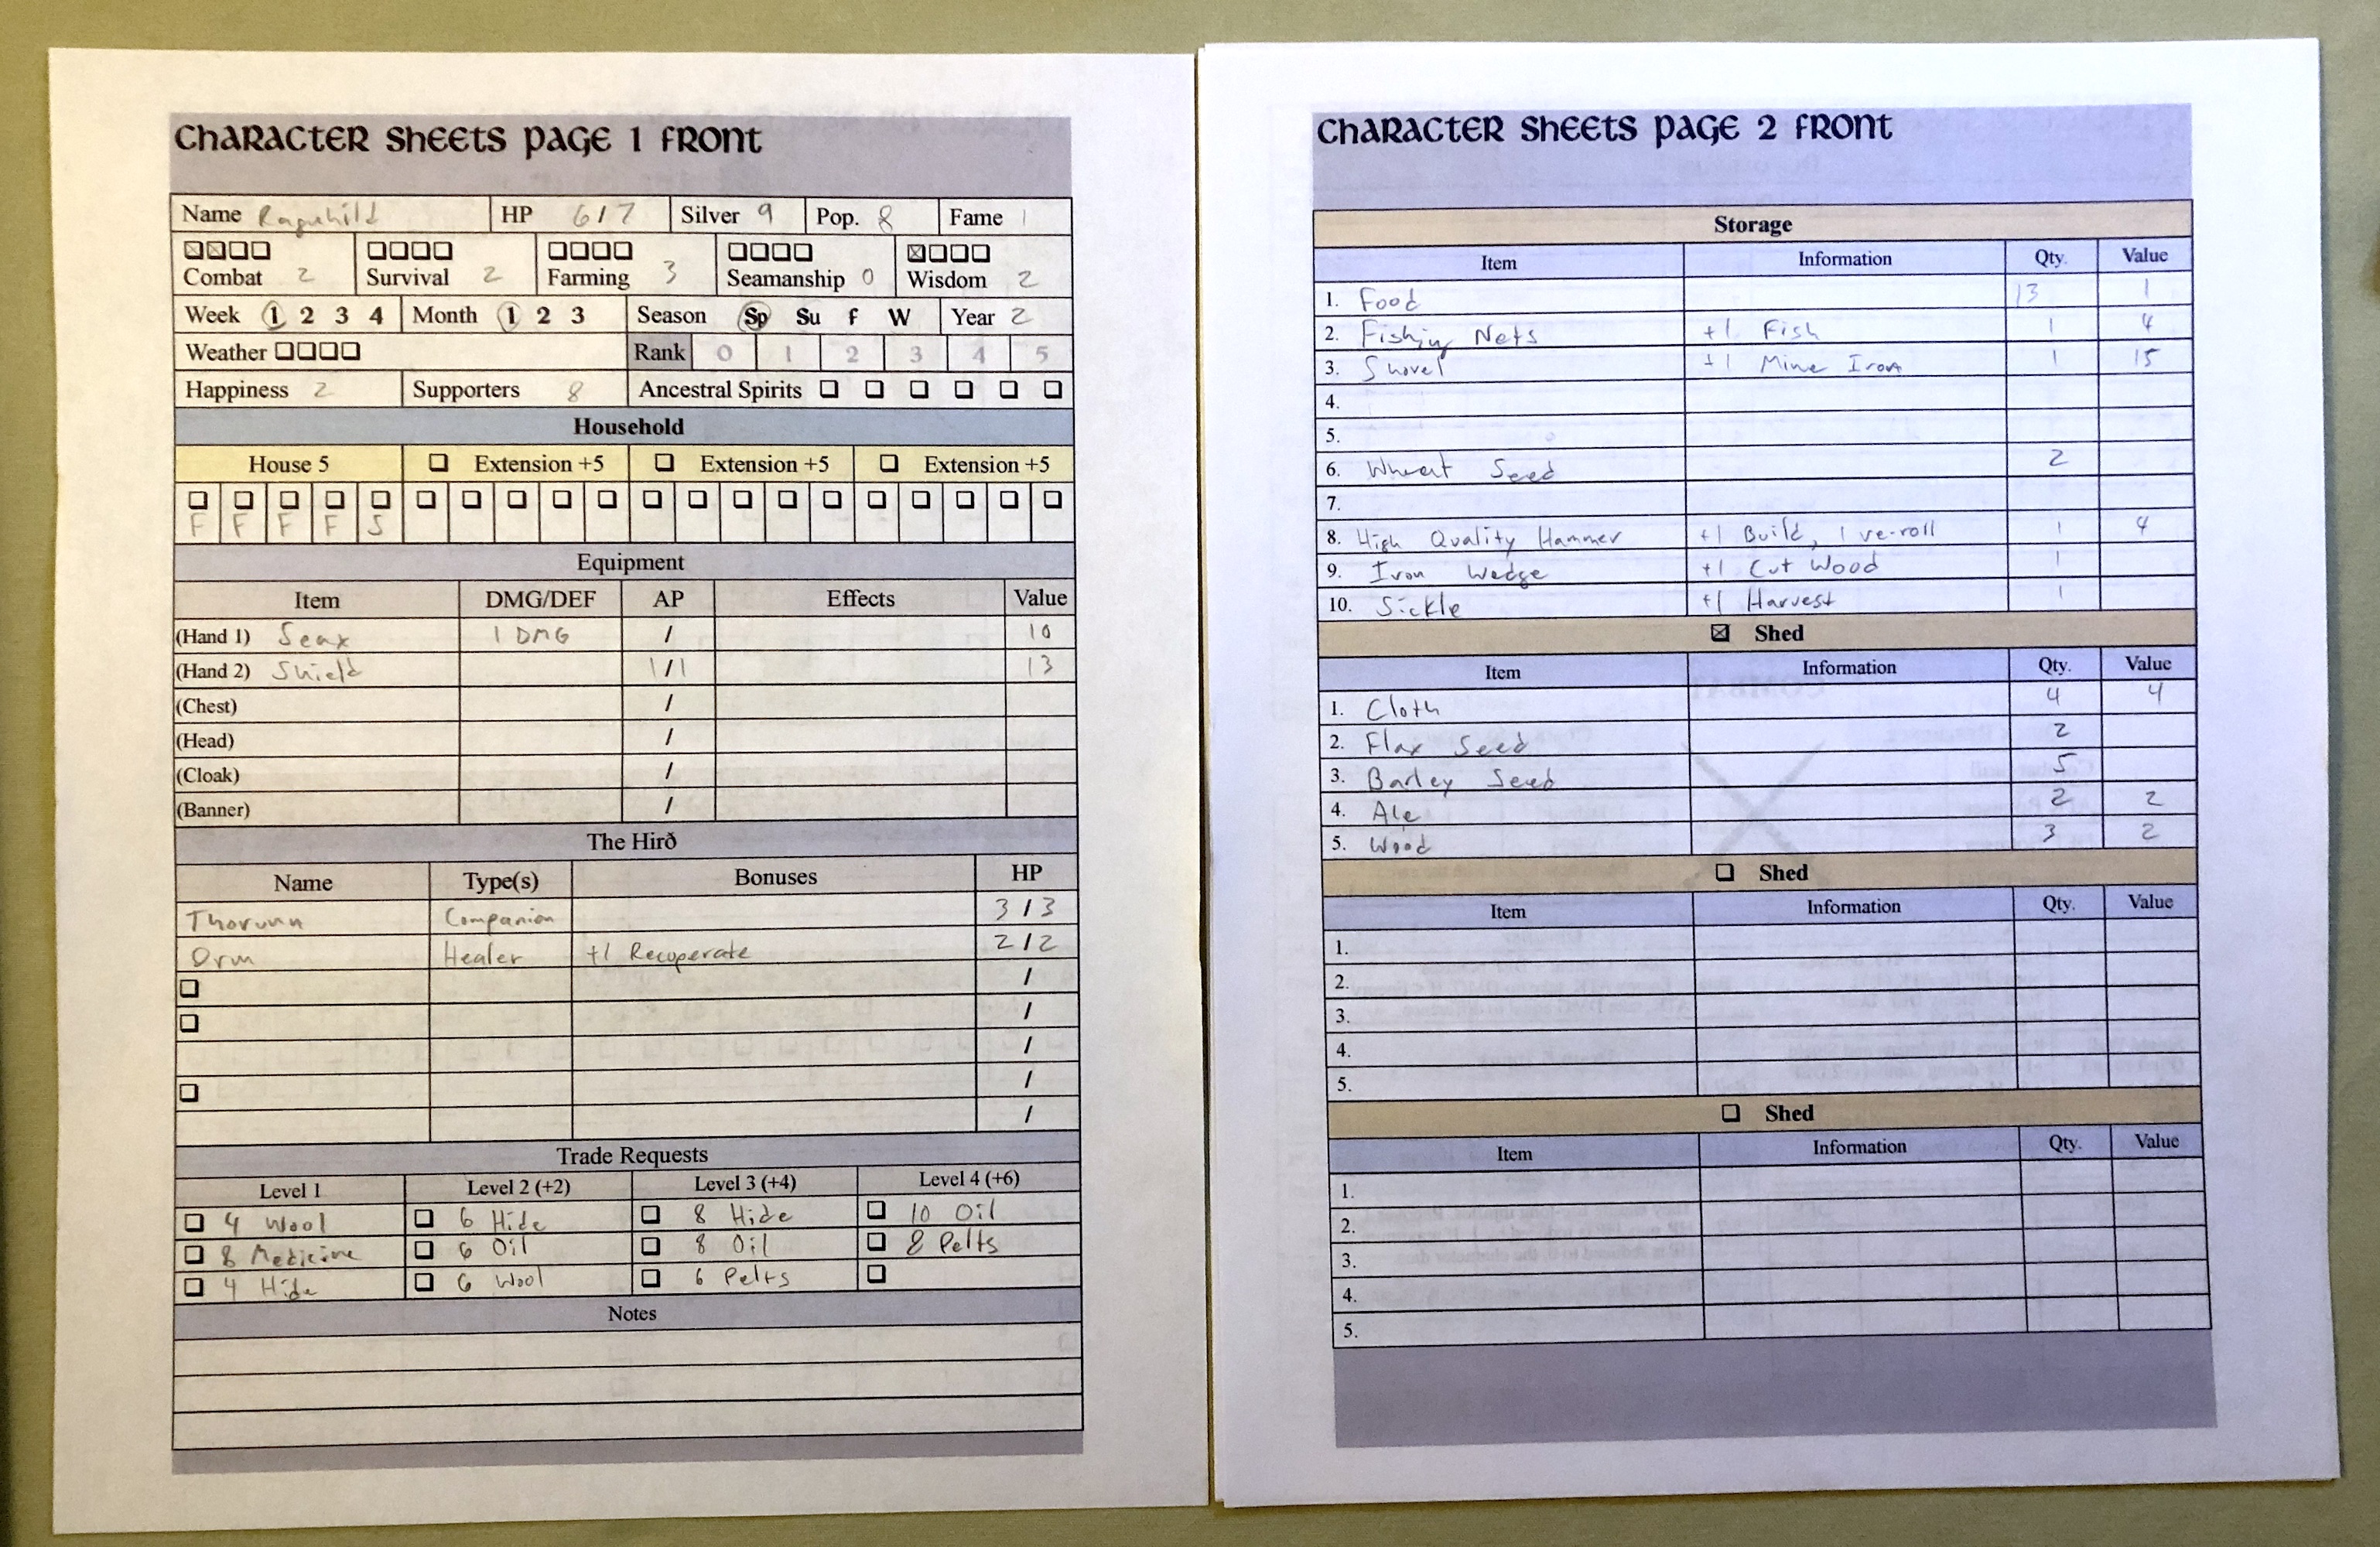 Character Sheets Page 1 Front
Name Ragnhild HP 6/7 Silver 9 Pop. 8 Fame 1
Combat 2 Survival 2 Farming 3 Seamanship 0 Wisdom 2
Week 1 2 3 4 Month 1 2 3 Season Sp Su F W Year 2
Weather Rank 0 1 2 3 4 5
Happiness 2 Supporters 8 Ancestral Spirits
Household
House 5 Extension +5 Extension +5 Extension +5
F F F F S
Equipment
Item DMG/DEF AP Effects Value
(Hand 1) Seax 1 DMG / 10
(Hand 2) Shield 1/1 13
(Chest) /
(Head) /
(Cloak) /
(Banner) /
The Hirð
Name Type(s) Bonuses HP
Thorunn Companion 3/3
Orm Healer +1 Recuperate 2/2
/
/
/
/
/
Trade Requests
Level 1 Level 2 (+2) Level 3 (+4) Level 4 (+6)
4 Wool 6 Hide 8 Hide 10 Oil
8 Medicine 6 Oil 8 Oil 8 Pelts
4 Hide 6 Wool 6 Pelts
Notes
Character Sheets Page 2 Front
Storage
Item Information Qty. Value
1. Food 13 1
2. Fishing Nets +1 Fish 1 4
3. Shovel +1 Mine Iron 1 15
4.
5.
6. Wheat Seed 2
7.
8. High Quality Hammer +1 Build, 1 re-roll 1 4
9. Iron Wedge +1 Cut Wood 1
10. Sickle +1 Harvest 1
Shed
Item Information Qty. Value
1. Cloth 4 4
2. Flax Seed 2
3. Barley Seed 5
4. Ale 2 2
5. Wood 3 2
Shed
Item Information Qty. Value
1.
2.
3.
4.
5.
Shed
Item Information Qty. Value
1.
2.
3.
4.
5.